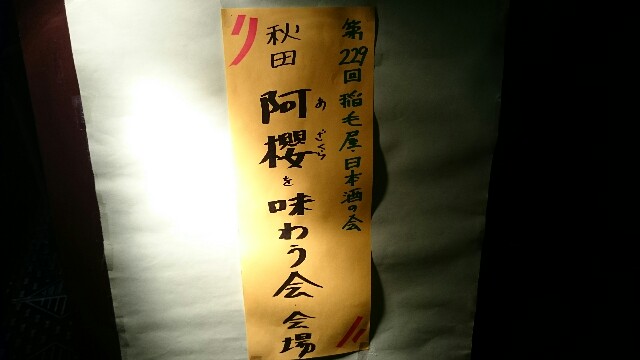 第229回 稲毛屋・日本酒の会
秋田
阿櫻を味わう会 会場
あざくら